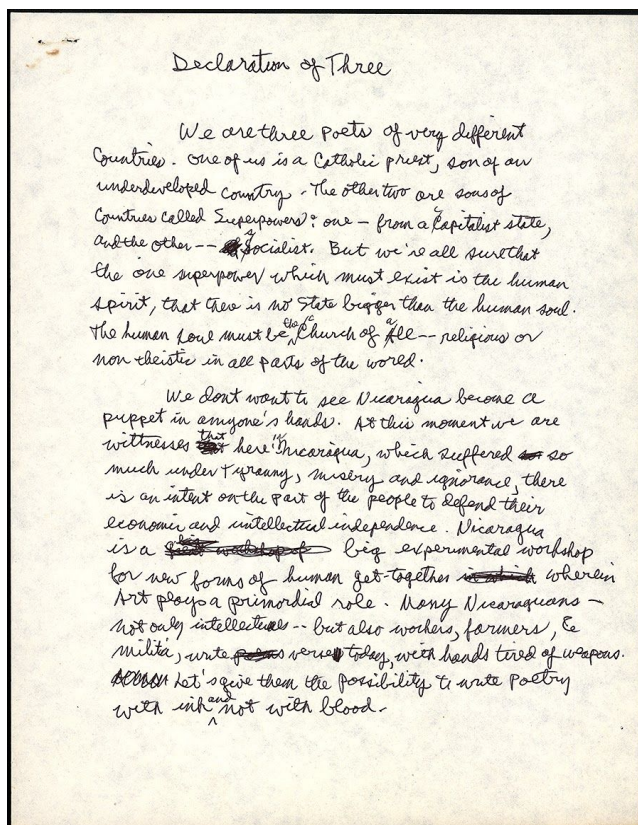 Declaration of Three
We are three poets of very different
Countries. One of us is a Catholic priest, son of an
underdeveloped country. The other two are sons of
Countries called Superpowers: one — from a capitalist state,
and the other -- socialist. But we're all sure that
the one superpower which must exist is the human
spirit, that there is no State bigger than the human soul.
The human soul must be the church of all -- religious or
non theistic in all parts of the world.
We dont want to see Nicaragua become a
puppet in anyone's hands. At this moment we are
wittnesses that here in nicaragua, which suffered so
much under tyranny, misery and ignorance, there
is an intent on the part of the people to defend their
economic and intellectual independence. Nicaragua
is a big experimental workshop
for new forms of human get-together wherein
Art plays a primordial role. Many Nicaraguans —
not only intellectuals -- but also workers, farmers, &
militá, write verse today, with hands tired of weapons.
Let's give them the possibility to write poetry
with ink and not with blood.